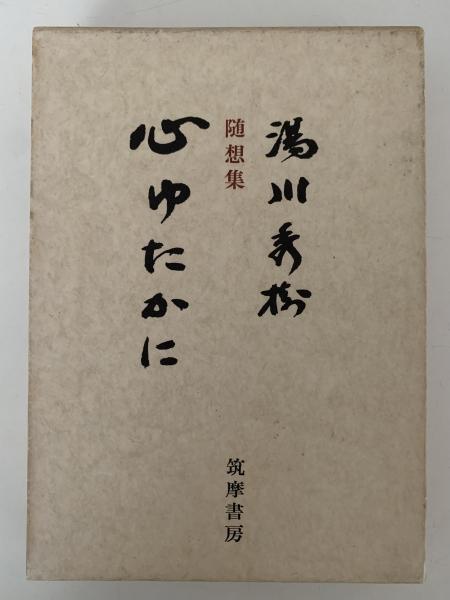 湯川秀樹
随想集
心ゆたかに
筑摩書房